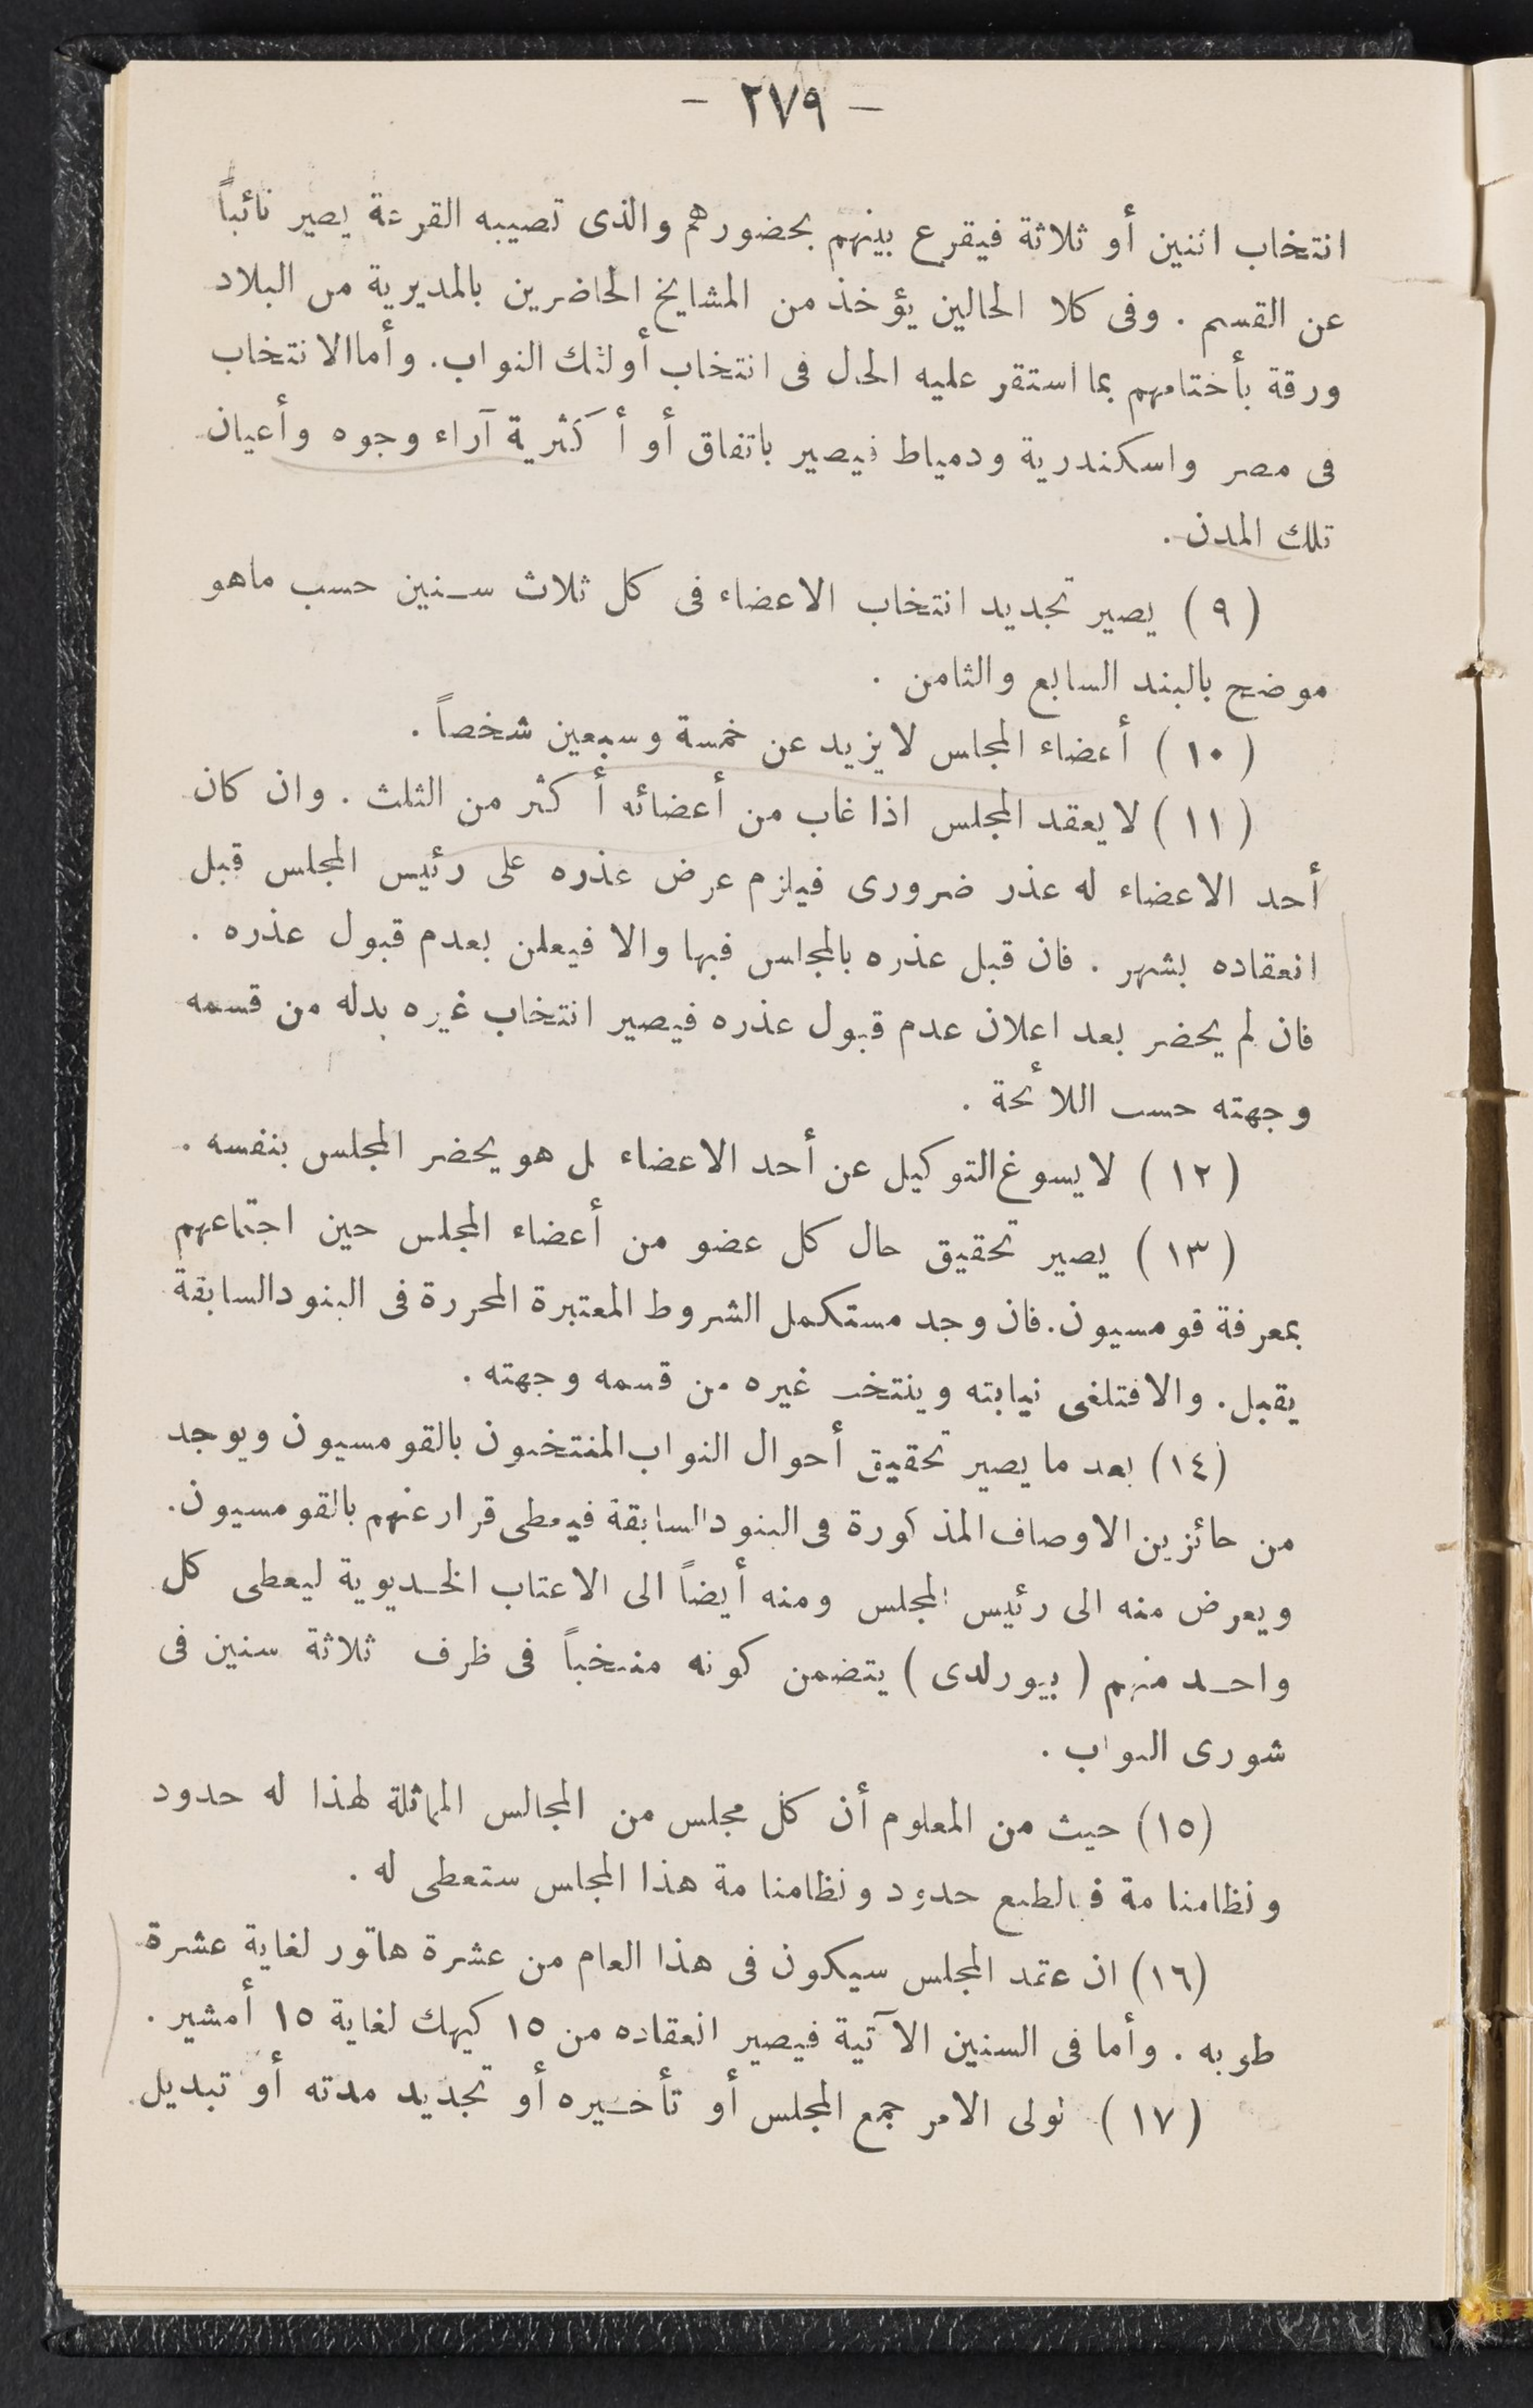 - ٢٧٩ -
انتخاب اثنين أو ثلاثة فيقرع بينهم بحضورهم والذى تصيبه القرعة يصير نائباً
عن القسم . وفى كلا الحالين يؤخذ من المشايخ الحاضرين بالمديرية من البلاد
ورقة بأختامهم بما استقر عليه الحال فى انتخاب أولئك النواب. وأما الانتخاب
فى مصر واسكندرية ودمياط فيصير باتفاق أو أكثرية آراء وجوه وأعيان
تلك المدن .
(٩) يصير تجديد انتخاب الاعضاء فى كل ثلاث سنين حسب ماهو
موضح بالبند السابع والثامن .
(١٠) أعضاء المجلس لا يزيد عن خمسة وسبعين شخصاً .
(١١) لا يعقد المجلس اذا غاب من أعضائه أكثر من الثلث . وان كان
أحد الاعضاء له عذر ضرورى فيلزم عرض عذره على رئيس المجلس قبل
انعقاده بشهر . فان قبل عذره بالمجلس فبها والا فيعلن بعدم قبول عذره .
فان لم يحضر بعد اعلان عدم قبول عذره فيصير انتخاب غيره بدله من قسمه
وجهته حسب اللائحة .
(١٢) لا يسوغ التوكيل عن أحد الاعضاء بل هو يحضر المجلس بنفسه .
(١٣) يصير تحقيق حال كل عضو من أعضاء المجلس حين اجتماعهم
بمعرفة قومسيون. فان وجد مستكمل الشروط المعتبرة المحررة فى البنود السابقة
يقبل. والا فتلغى نيابته وينتخب غيره من قسمه وجهته .
(١٤) بعد ما يصير تحقيق أحوال النواب المنتخبون بالقومسيون ويوجد
من حائزين الاوصاف المذكورة فى البنود السابقة فيعطى قرار عنهم بالقومسيون.
ويعرض منه الى رئيس المجلس ومنه أيضاً الى الاعتاب الخديوية ليعطى كل
واحد منهم (بيورلدى) يتضمن كونه منتخباً فى ظرف ثلاثة سنين فى
شورى النواب .
(١٥) حيث من المعلوم أن كل مجلس من المجالس المماثلة لهذا له حدود
ونظامنامة فبالطبع حدود ونظامنامة هذا المجلس ستعطى له .
(١٦) ان عقد المجلس سيكون فى هذا العام من عشرة هاتور لغاية عشرة
طوبه . وأما فى السنين الآتية فيصير انعقاده من ١٥ كيهك لغاية ١٥ أمشير .
(١٧) لولى الامر جمع المجلس أو تأخيره أو تجديد مدته أو تبديل